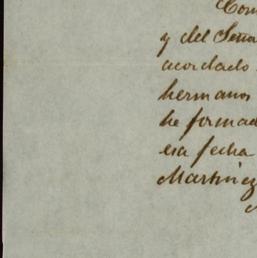 Com
y del Seña
acordado
hermanos
he formad
esa fecha
Martinez